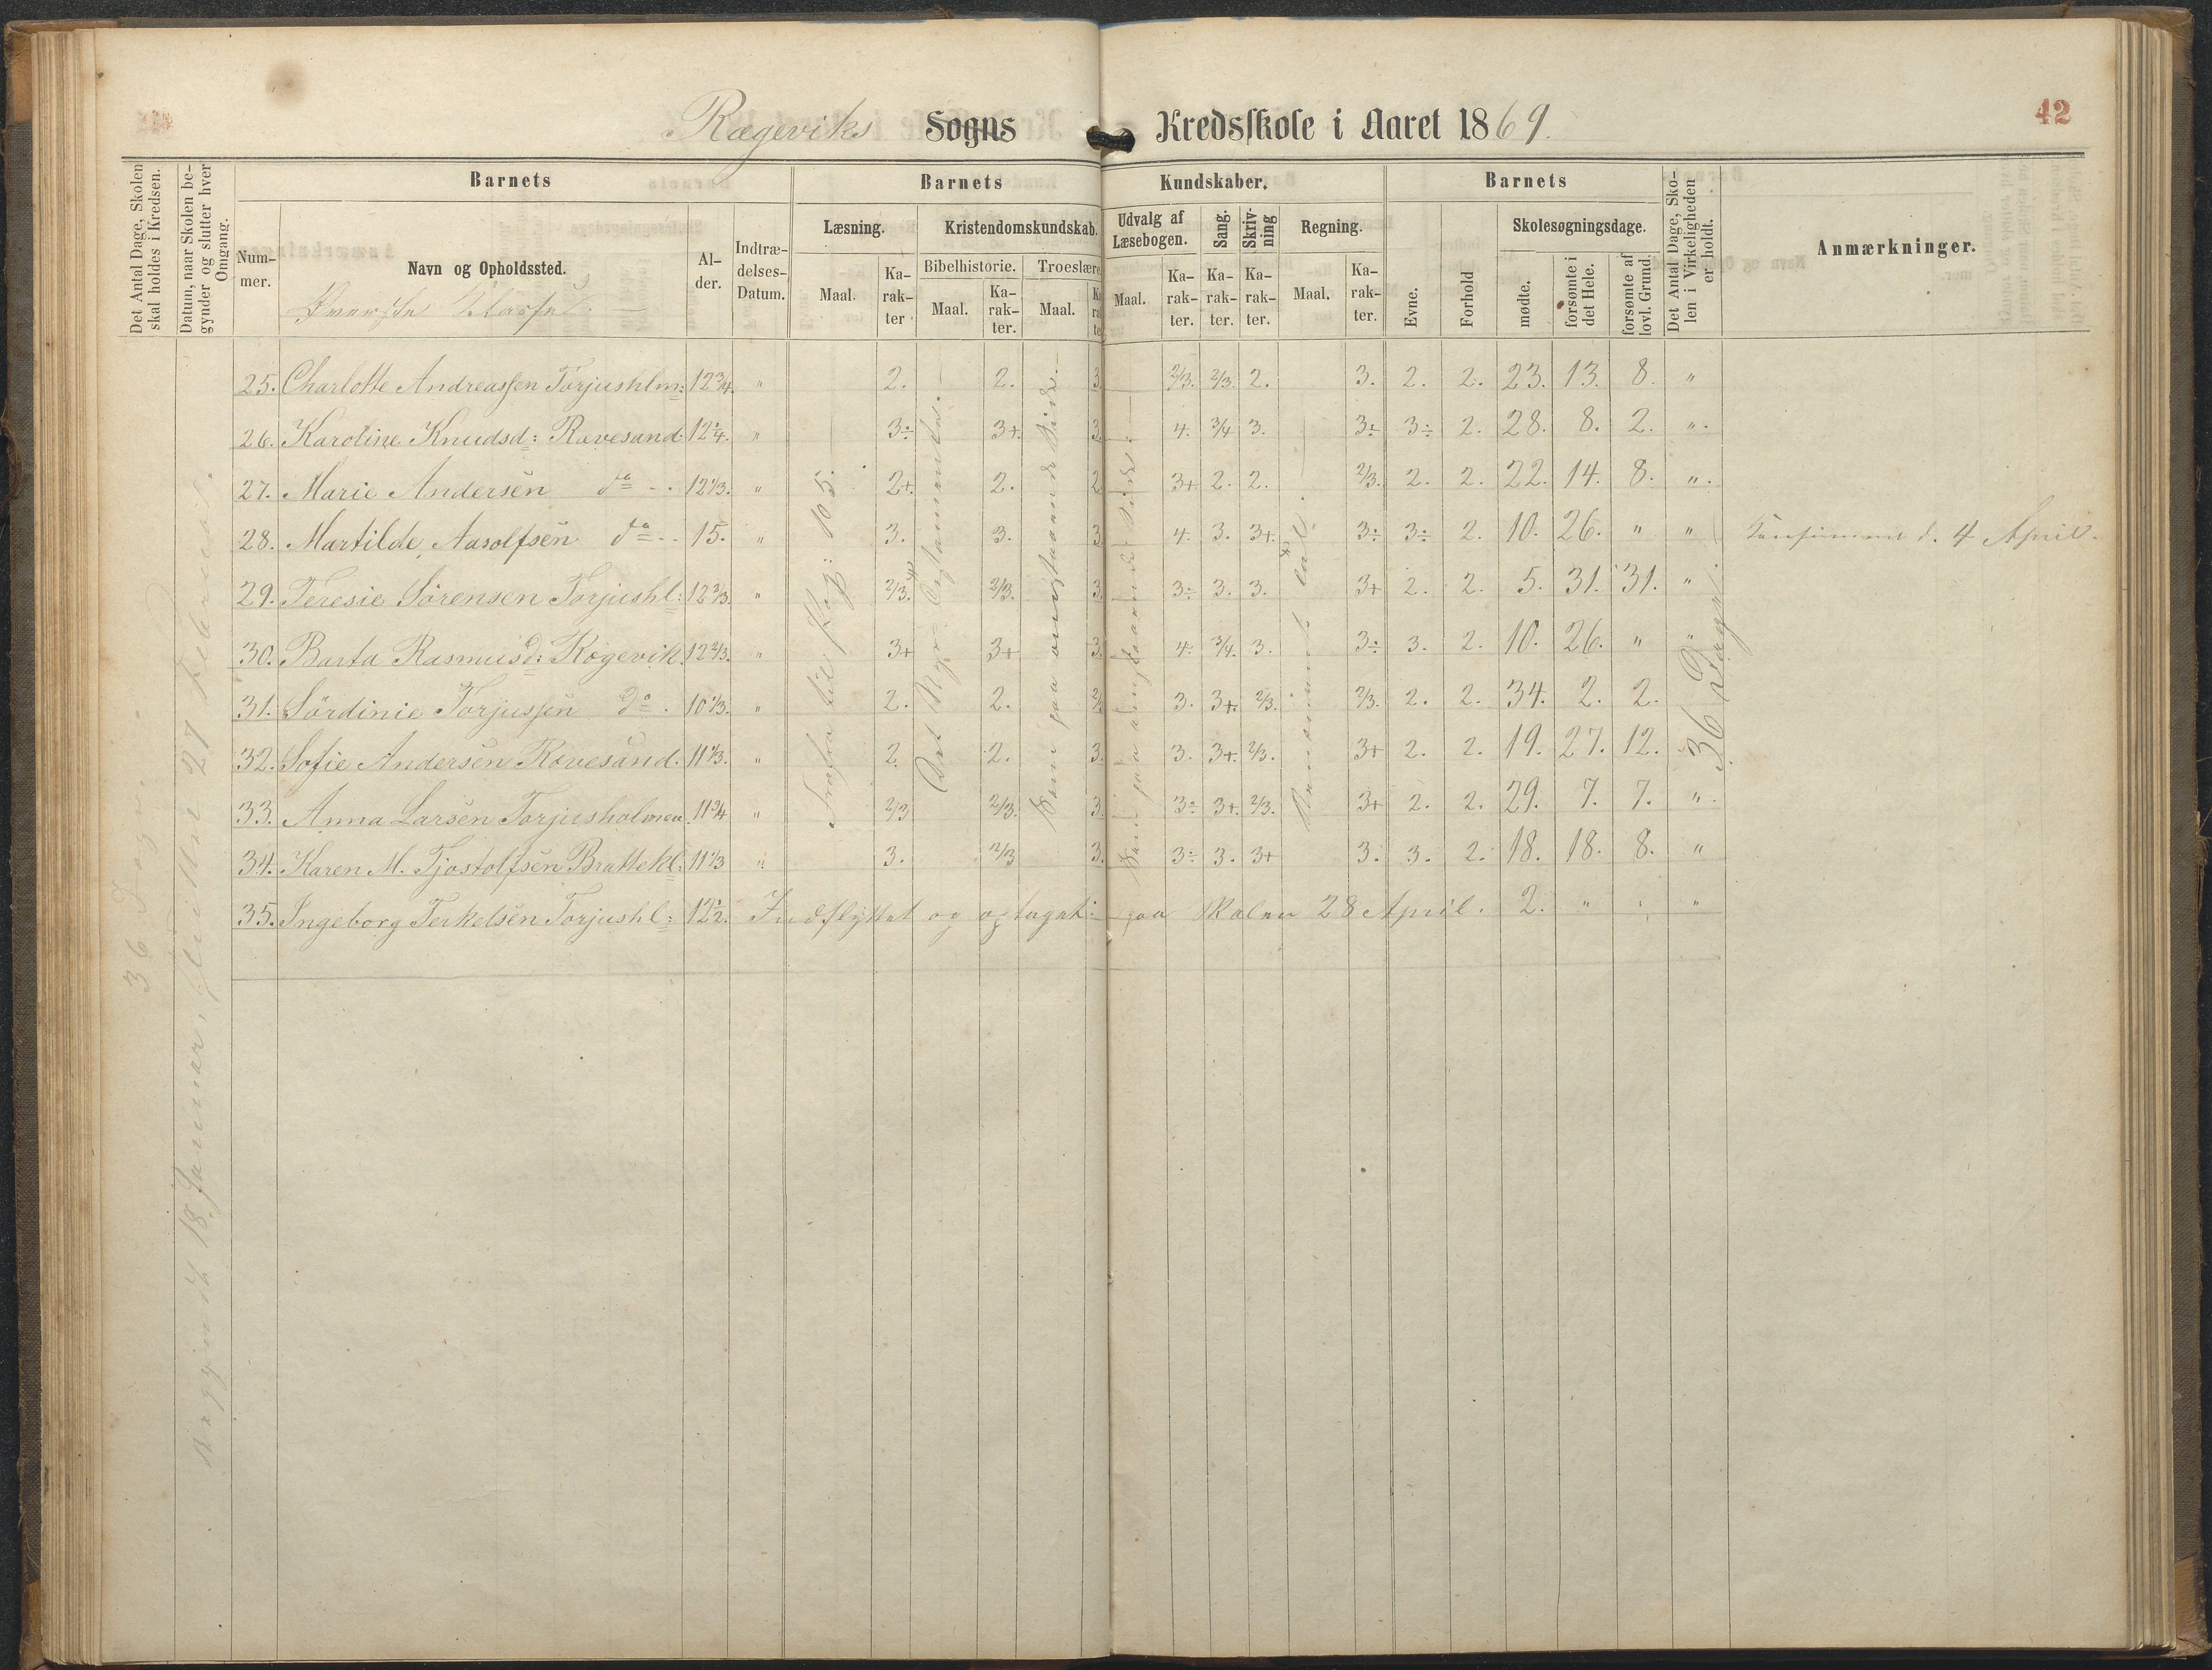 42
Rægeviks Sogns Kredsskole i Aaret 1869.
Det Antal Dage, Skolen skal holdes i Kredsen.
Datum, naar Skolen begynder og slutter hver Omgang.
Barnets
Barnets
Kundskaber.
Barnets
Det Antal Dage, Skolen i Virkeligheden er holdt.
Anmærkninger.
Nummer.
Navn og Opholdssted.
Øverste Klasse.
Alder.
Indtrædelses-Datum.
Læsning.
Kristendomskundskab.
Udvalg af Læsebogen.
Sang.
Skrivning
Regning.
Evne.
Forhold
Skolesøgningsdage.
Bibelhistorie.
Troeslære
Maal.
Karakter
Maal.
Karakter.
Maal.
Maal.
Karakter.
Karakter.
Karakter.
Maal.
Karakter.
mødte.
forsømte i det Hele.
forsømte af lovl. Grund.
25. Charlotte Andreassen Torjushlm: 12 3/4. " 2. 2. 3. 2/3. 2/3. 2. 3. 2. 2. 23. 13. 8. "
26. Karoline Knudsd: Rævesand 12 1/4. " 3÷ 3+. 3. 4. 3/4 3. 3÷ 3÷ 2. 28. 8. 2. ".
27. Marie Andersen do 12 1/3. " 2+. 2. 2. 3+ 2. 2. 2/3. 2. 2. 22. 14. 8. ".
28. Martilde Aasolfsen do 15. " 3. 3. 3. 4. 3. 3+. 3÷ 3÷ 2. 10. 26. " " d. 4 April.
29. Teresie Sörensen Torjushl: 12 2/3. " 2/3. 2/3. 3. 3÷ 3. 3. 3+ 2. 2. 5. 31. 31. "
30. Barta Rasmusd: Rögevik. 12 2/3. " 3+ 3+ 3. 4. 3/4. 3. 3÷ 3. 2. 10. 26. " "
31. Sördinie Torjussen do. 10 1/3. " 2. 2. 2/3 3. 3+. 2/3. 2/3. 2. 2. 34. 2. 2.
32. Sofie Andersen Rævesand. 11 1/3. " 2. 2. 3. 3. 3+. 2/3. 3+ 2. 2. 19. 27. 12.
33. Anna Larsen Torjusholmen. 11 3/4 " 2/3 2/3. 3. 3÷ 3+. 2/3. 3+ 2. 2. 29. 7. 7. ".
34. Karen M. Tjostolfsen Brattekl: 11 1/3 " 3. 2/3 3. 3÷ 3. 3+ 3. 3. 2. 18. 18. 8. "
35. Ingeborg Terkelsen Torjushl: 12 1/2. Indflyttet og optaget: paa Skolen 28 April. 2. " " "
36 Dage.
Begyndt 18. Januar, sluttet 27 Februar.
Indtil Pag: 105.
Det Nye Testamente.
Som paa omstaaende Side.
Som paa omstaaende Side.
36 Dage.